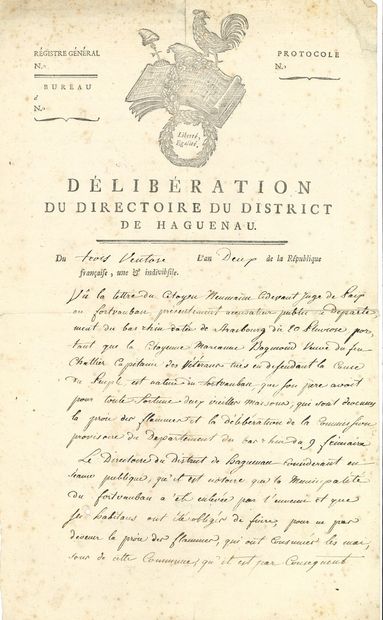 RÉGISTRE GÉNÉRAL
N.º
BUREAU
d
N.º
PROTOCOLE
N.º
Liberté,
Égalité.
DÉLIBÉRATION
DU DIRECTOIRE DU DISTRICT
DE HAGUENAU.
Du trois Ventose L'an Deux de la République
française, une & indivisible.
Vû la lettre du Citoyen Neumann cidevant Juge de Paix
au fortvauban, présentement accusateur public departe-
ment du bas rhin datée de Strasbourg du 20 Pluviose por-
tant que la Citoyenne Marianne Veuve du feu
Capitaine des Vétérans tués en defendant la Cause
du Peuple est native du fortvauban, que son pere avoit
pour toute fortune deux vieilles maisons, qui sont devenues
la proie des flammes et la déliberation de la Commission
provisoire du département du bas rhin du 9 frimaire
Le Directoire du District de haguenau considerant en
séance publique, qu'il est notoire que la Municipalité
du fortvauban a été enlevée par l'ennemi et que
ses habitans ont été obligés de fuire, pour ne pas
devenir la proie des flammes, qui ont consumées les mai-
sons de cette Commune, qu'il est par Consequent